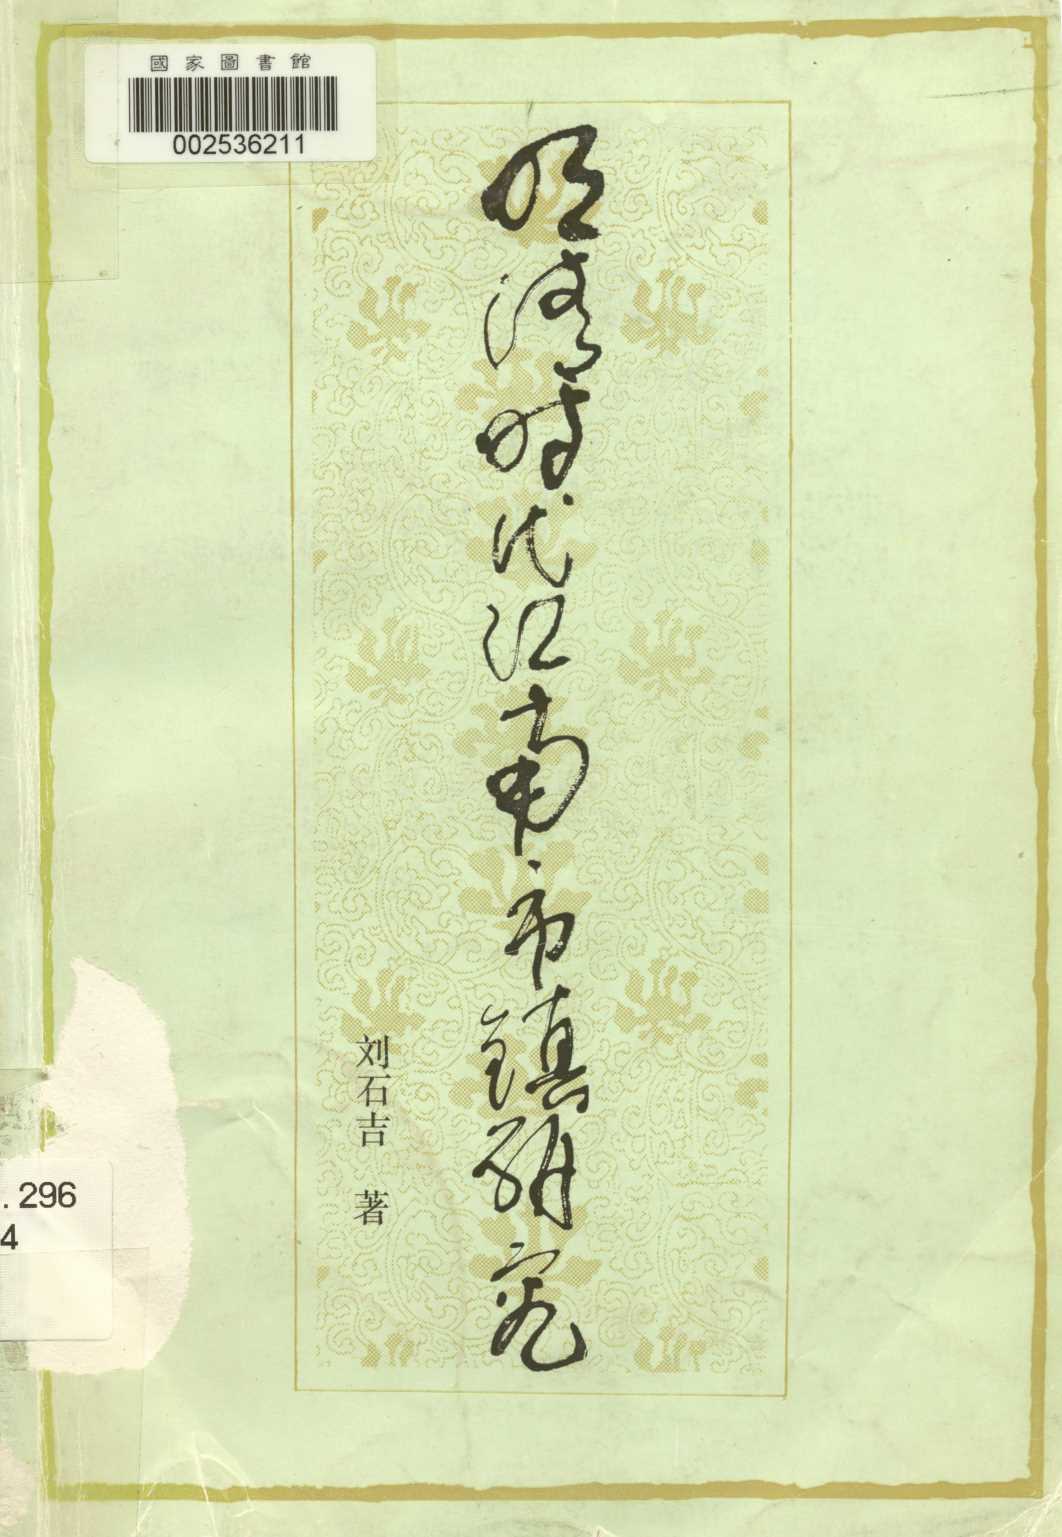 國家圖書館
002536211
明清時代江南市鎮研究
刘石吉 著
.296
4